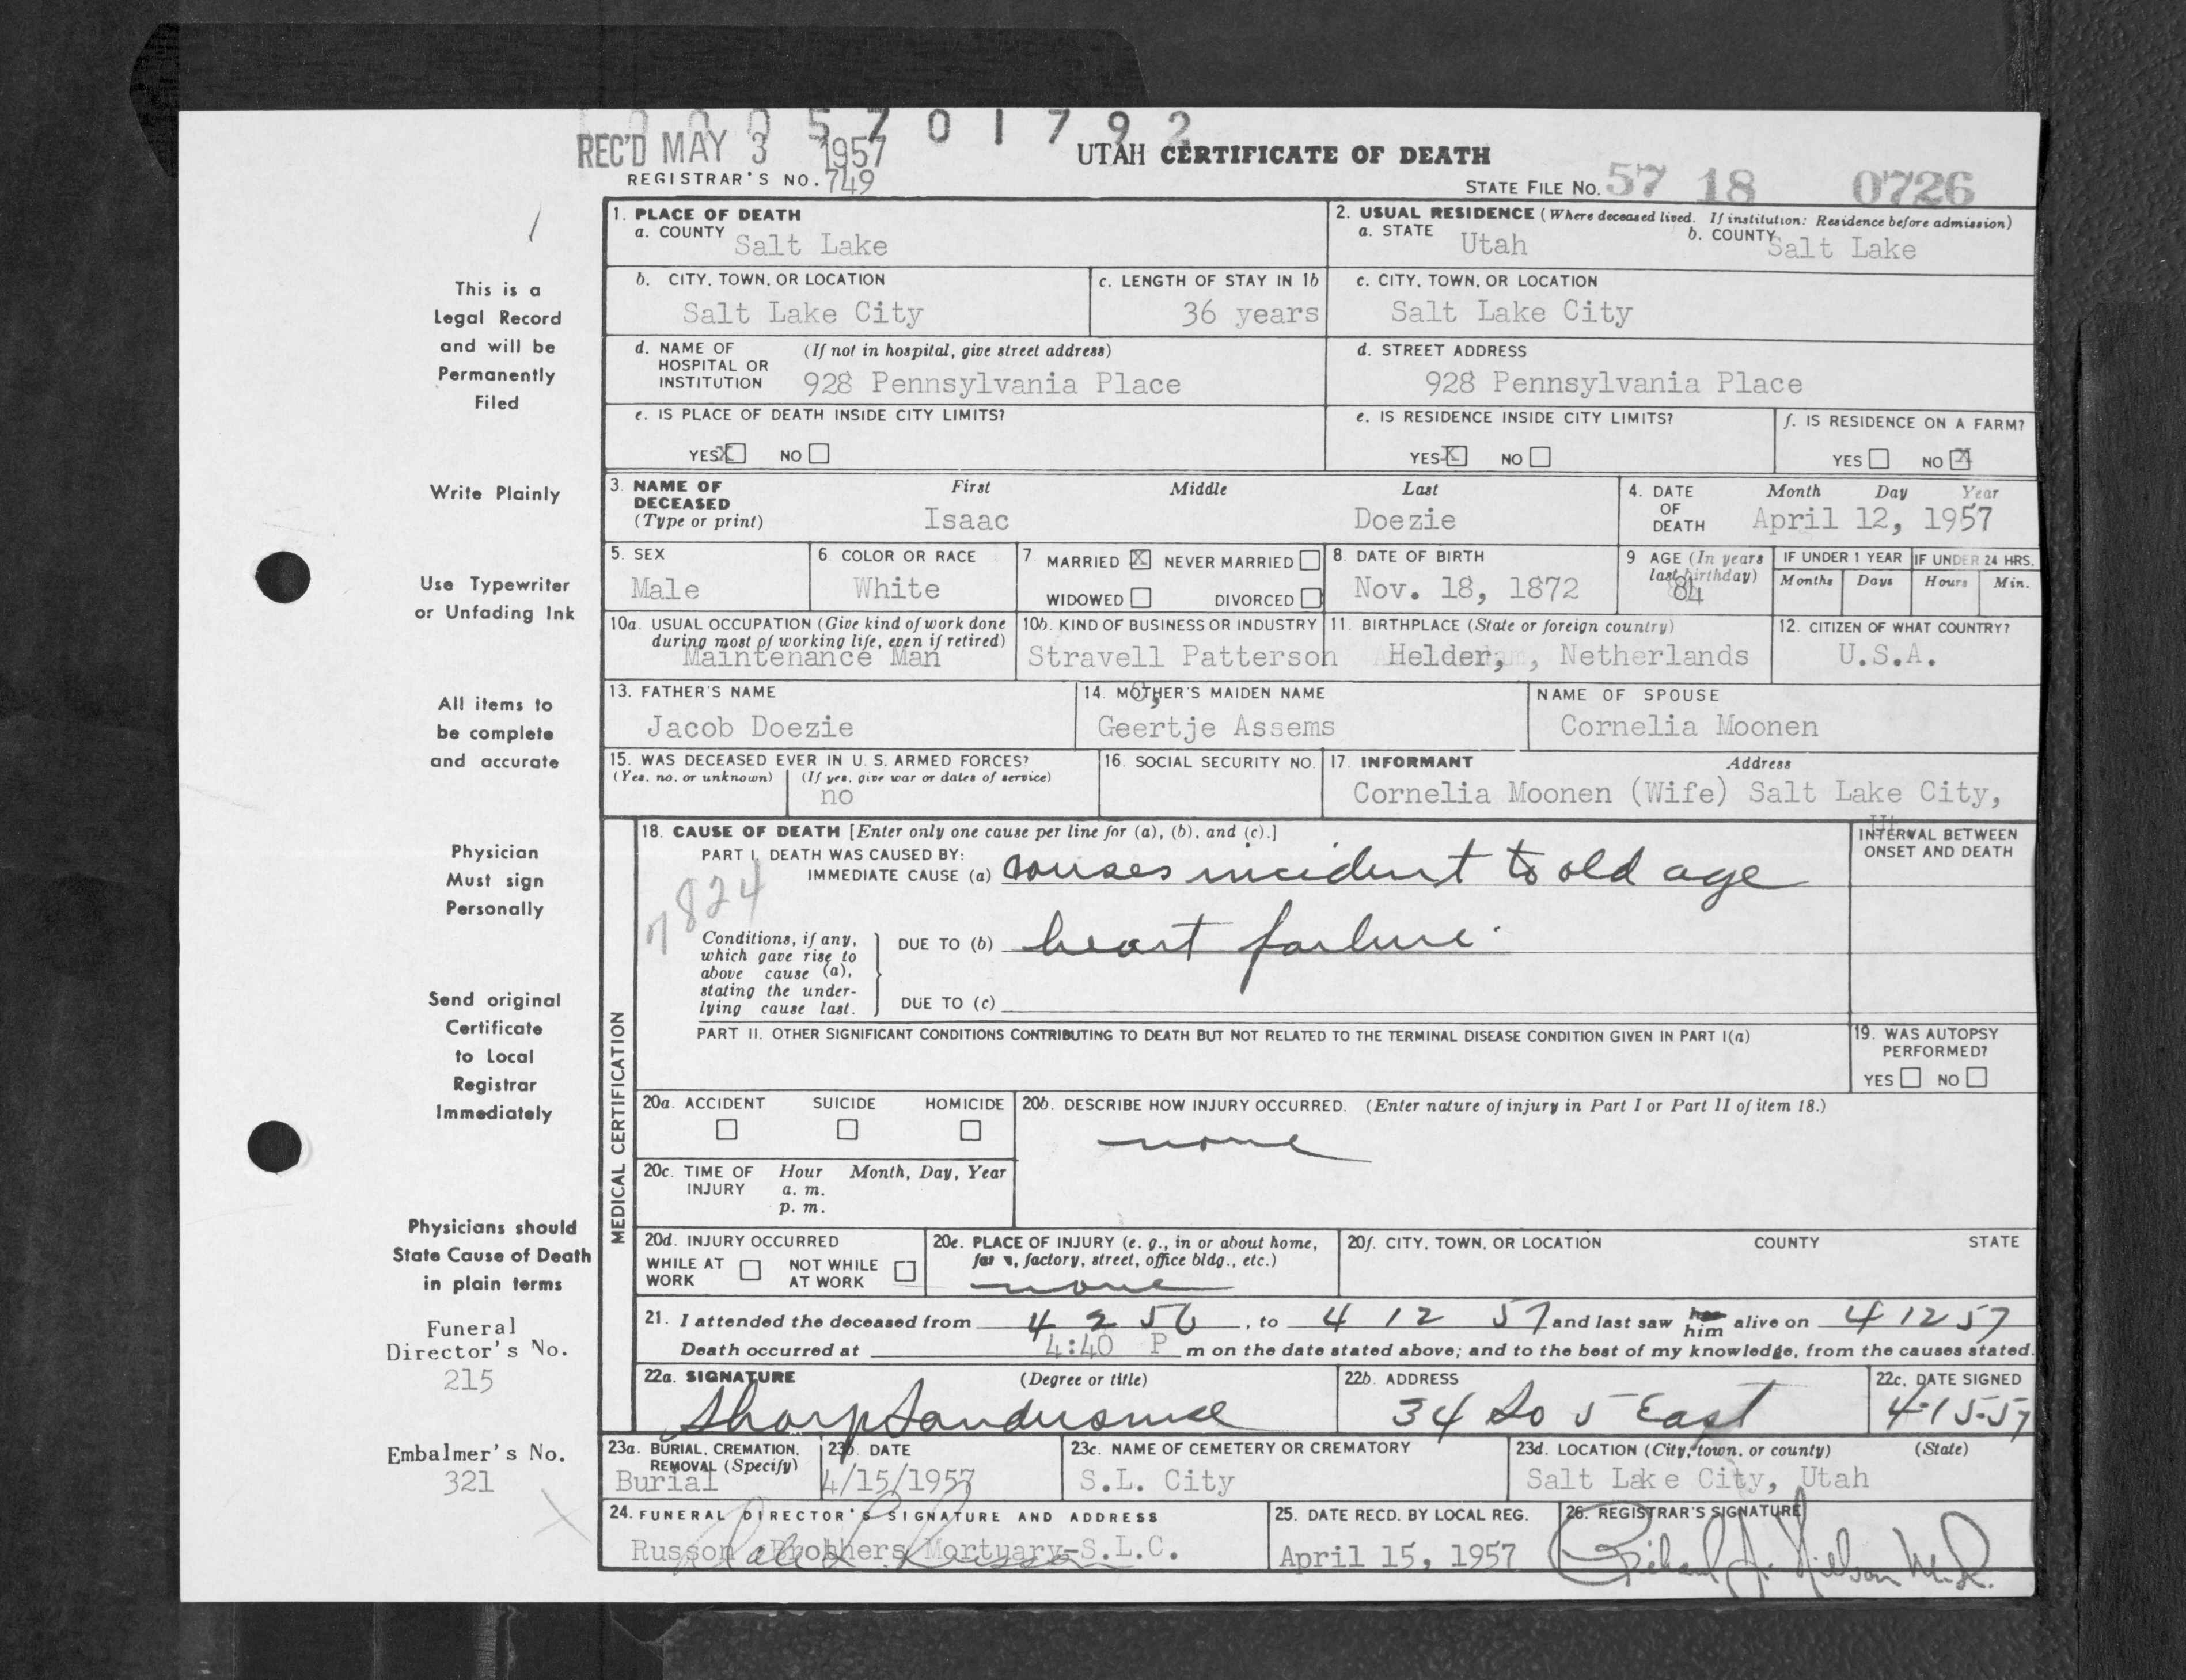 0005701792
REC'D MAY 3 1957
UTAH CERTIFICATE OF DEATH
REGISTRAR'S NO. 749
STATE FILE NO. 57 18 0726
This is a
Legal Record
and will be
Permanently
Filed
Write Plainly
Use Typewriter
or Unfading Ink
All items to
be complete
and accurate
Physician
Must sign
Personally
Send original
Certificate
to Local
Registrar
Immediately
Physicians should
State Cause of Death
in plain terms
Funeral
Director's No.
215
Embalmer's No.
321
1. PLACE OF DEATH
a. COUNTY Salt Lake
2. USUAL RESIDENCE (Where deceased lived. If institution: Residence before admission)
a. STATE Utah b. COUNTY Salt Lake
b. CITY, TOWN, OR LOCATION
Salt Lake City
c. LENGTH OF STAY IN 1b
36 years
c. CITY, TOWN, OR LOCATION
Salt Lake City
d. NAME OF HOSPITAL OR INSTITUTION (If not in hospital, give street address)
928 Pennsylvania Place
d. STREET ADDRESS
928 Pennsylvania Place
e. IS PLACE OF DEATH INSIDE CITY LIMITS?
YES X NO
e. IS RESIDENCE INSIDE CITY LIMITS?
YES X NO
f. IS RESIDENCE ON A FARM?
YES NO X
3. NAME OF DECEASED (Type or print)
First Middle Last
Isaac Doezie
4. DATE OF DEATH Month Day Year
April 12, 1957
5. SEX
Male
6. COLOR OR RACE
White
7. MARRIED X NEVER MARRIED
WIDOWED DIVORCED
8. DATE OF BIRTH
Nov. 18, 1872
9 AGE (In years last birthday)
84
IF UNDER 1 YEAR IF UNDER 24 HRS.
Months Days Hours Min.
10a. USUAL OCCUPATION (Give kind of work done during most of working life, even if retired)
Maintenance Man
10b. KIND OF BUSINESS OR INDUSTRY
Stravell Patterson
11. BIRTHPLACE (State or foreign country)
Helder, , Netherlands
12. CITIZEN OF WHAT COUNTRY?
U.S.A.
13. FATHER'S NAME
Jacob Doezie
14. MOTHER'S MAIDEN NAME
Geertje Assems
NAME OF SPOUSE
Cornelia Moonen
15. WAS DECEASED EVER IN U. S. ARMED FORCES?
(Yes, no, or unknown) (If yes, give war or dates of service)
no
16. SOCIAL SECURITY NO.
17. INFORMANT Address
Cornelia Moonen (Wife) Salt Lake City,
MEDICAL CERTIFICATION
18. CAUSE OF DEATH [Enter only one cause per line for (a), (b), and (c).]
INTERVAL BETWEEN ONSET AND DEATH
PART I. DEATH WAS CAUSED BY:
IMMEDIATE CAUSE (a) causes incident to old age
Conditions, if any, which gave rise to above cause (a), stating the underlying cause last.
DUE TO (b) heart failure
DUE TO (c)
PART II. OTHER SIGNIFICANT CONDITIONS CONTRIBUTING TO DEATH BUT NOT RELATED TO THE TERMINAL DISEASE CONDITION GIVEN IN PART I(a)
19. WAS AUTOPSY PERFORMED?
YES NO
20a. ACCIDENT SUICIDE HOMICIDE
20b. DESCRIBE HOW INJURY OCCURRED. (Enter nature of injury in Part I or Part II of item 18.)
none
20c. TIME OF INJURY Hour Month, Day, Year
a. m.
p. m.
20d. INJURY OCCURRED
WHILE AT WORK NOT WHILE AT WORK
20e. PLACE OF INJURY (e. g., in or about home, farm, factory, street, office bldg., etc.)
none
20f. CITY, TOWN, OR LOCATION COUNTY STATE
21. I attended the deceased from 4 2 56, to 4 12 57 and last saw him alive on 4 12 57
Death occurred at 4:40 P m on the date stated above; and to the best of my knowledge, from the causes stated.
22a. SIGNATURE (Degree or title)
22b. ADDRESS
34 So 5 East
22c. DATE SIGNED
4-15-57
23a. BURIAL, CREMATION, REMOVAL (Specify)
Burial
23b. DATE
4/15/1957
23c. NAME OF CEMETERY OR CREMATORY
S.L. City
23d. LOCATION (City, town, or county) (State)
Salt Lake City, Utah
24. FUNERAL DIRECTOR'S SIGNATURE AND ADDRESS
Russon Brothers Mortuary-S.L.C.
25. DATE RECD. BY LOCAL REG.
April 15, 1957
26. REGISTRAR'S SIGNATURE